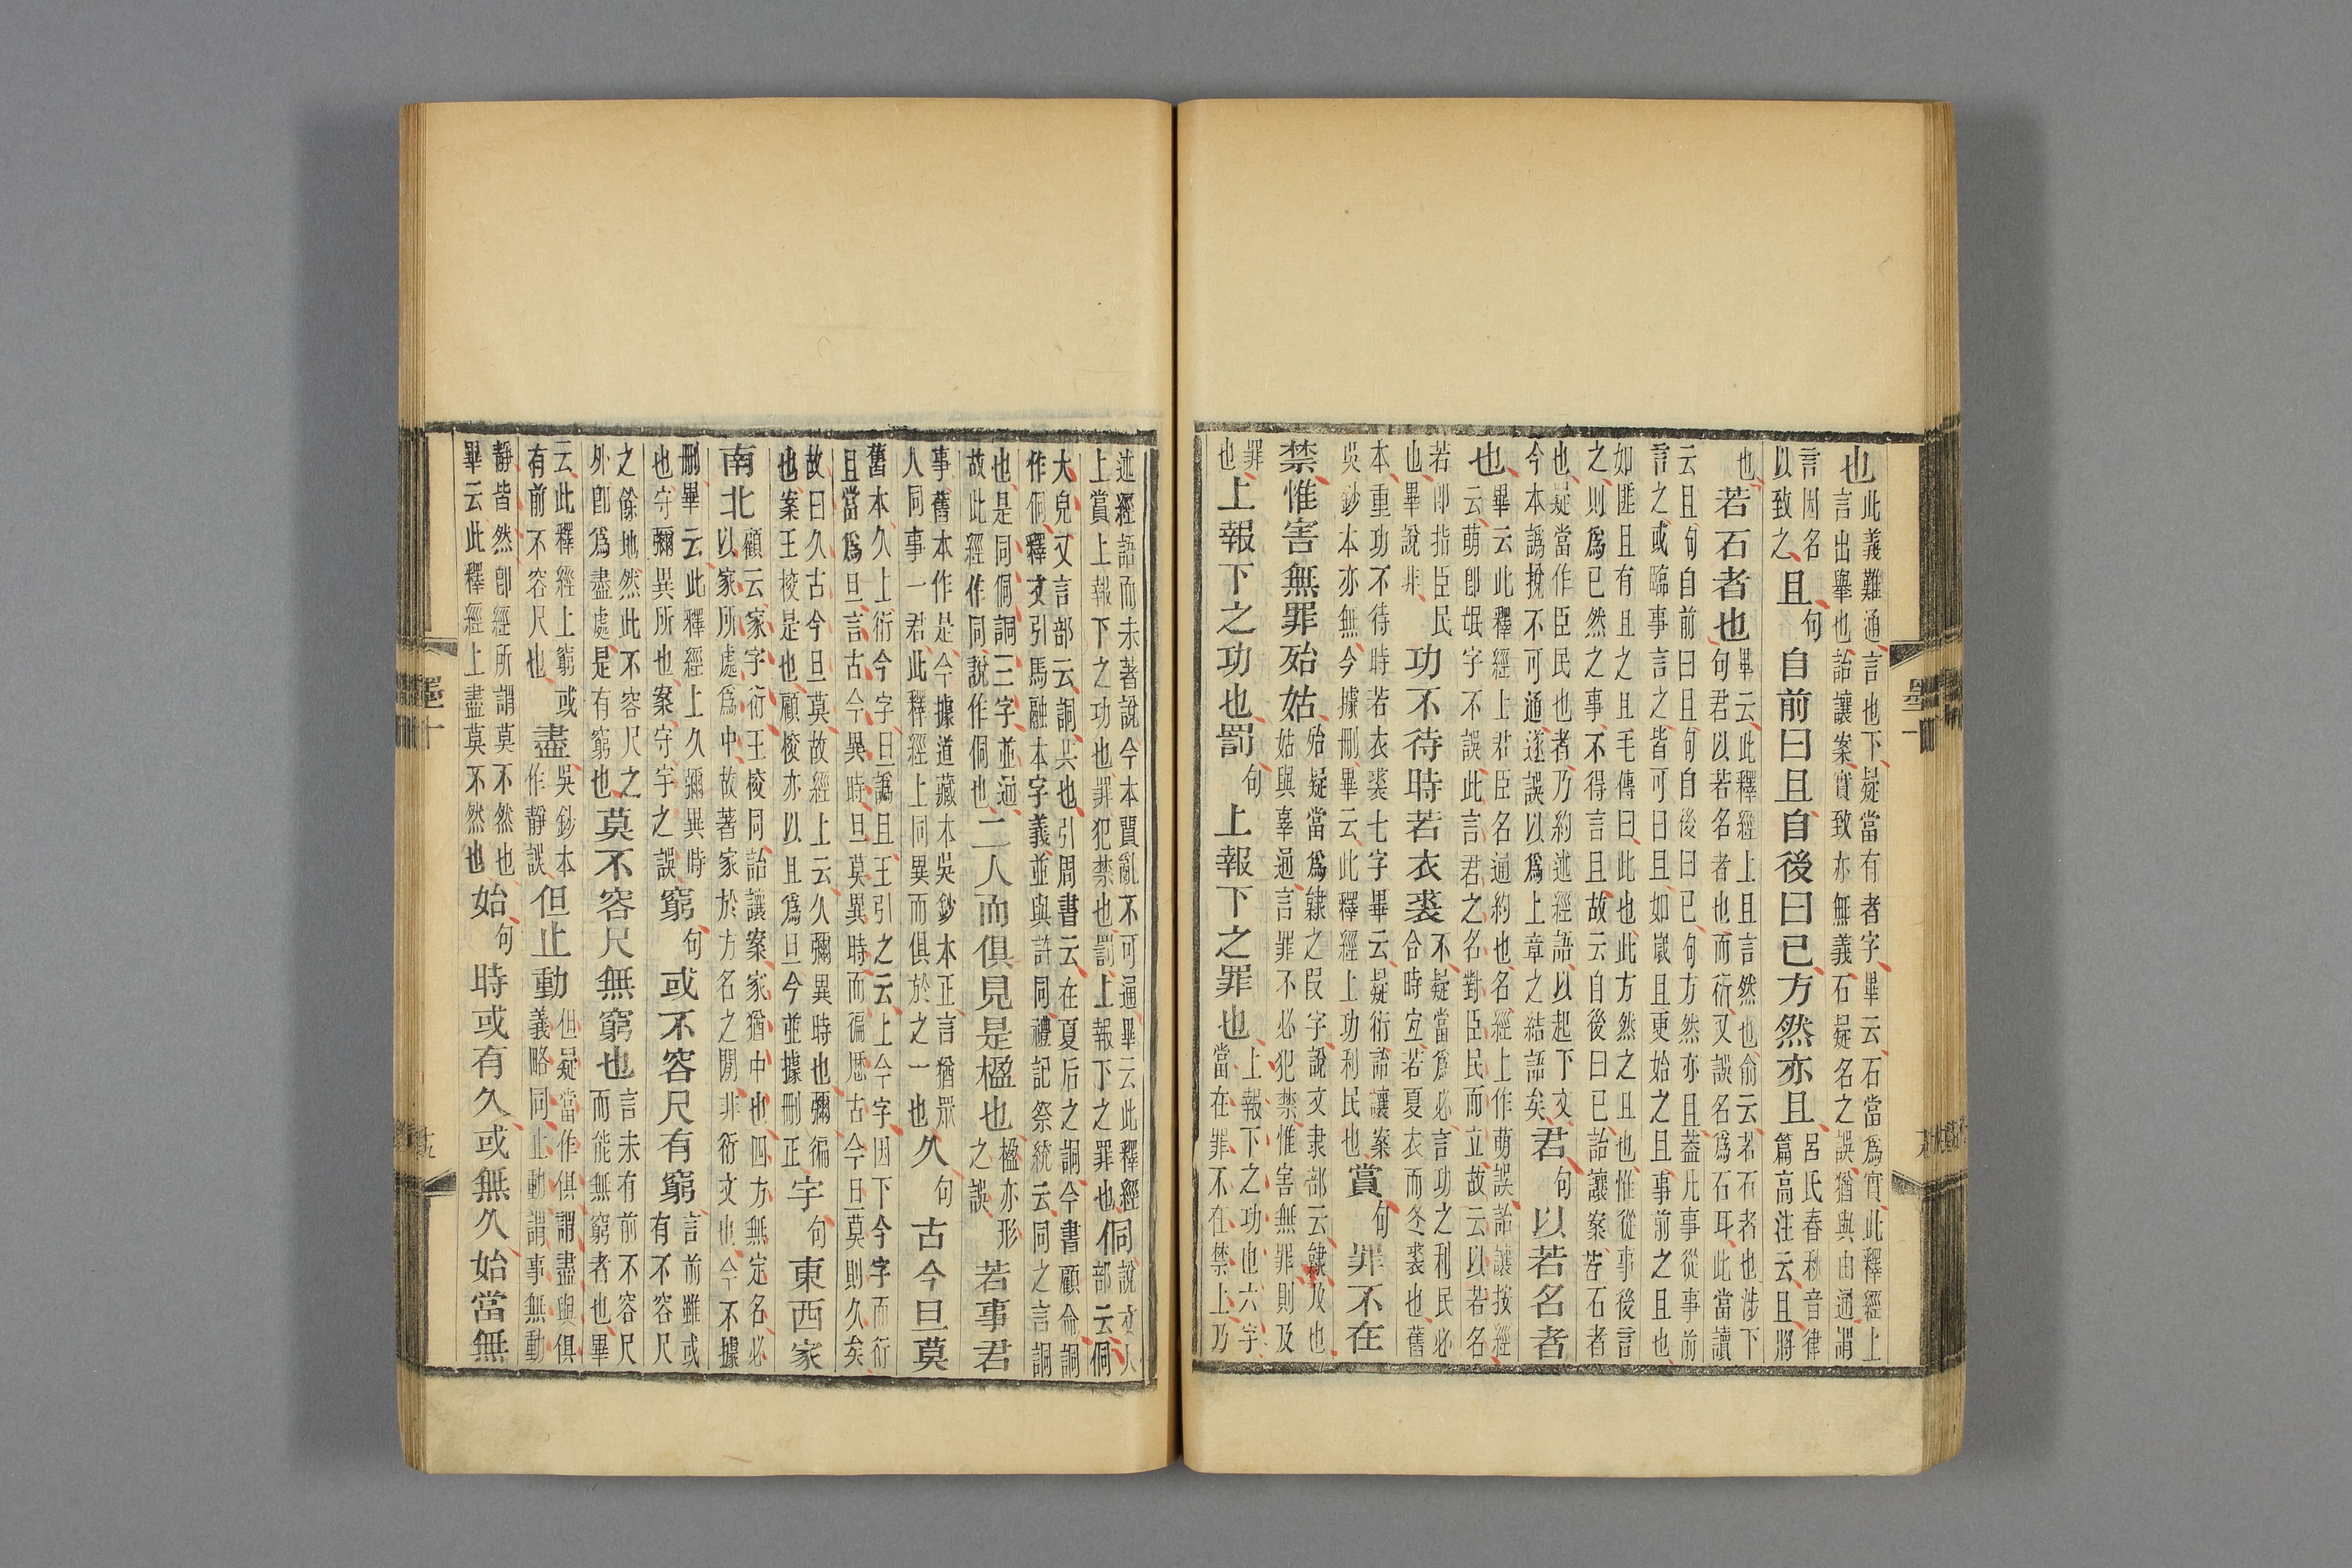 也此義難通言也下疑當有者字畢云石當爲實此釋經上言出舉也詒讓案實致亦無義石疑名之誤猶與由通謂
言因名以致之且句自前曰且自後曰已方然亦且呂氏春秋音律篇高注云且將
也若石者也句畢云此釋經上且言然也俞云若石者也涉下君以若名者也而衍又誤名爲石耳此當讀
云且句自前曰且句自後曰已句方然亦且蓋凡事從事前言之或臨事言之皆可曰且如歲且更始之且事前之且也
如匪且有且之且毛傳曰此也此方然之且也惟從事後言之則爲已然之事不得言且故云自後曰已詒讓案若石者
也疑當作臣民也者乃約述經語以起下文今本譌挩不可通遂誤以爲上章之結語矣君句以若名者
也畢云此釋經上君臣名通約也名經上作萌誤詒讓按經云萌卽氓字不誤此言君之名對臣民而立故云以若名
若卽指臣民也畢說非功不待時若衣裘不疑當爲必言功之利民必合時宜若夏衣而冬裘也舊
本重功不待時若衣裘七字畢云疑衍詒讓案吳鈔本亦無今據刪畢云此釋經上功利民也賞句罪不在
禁惟害無罪殆姑殆疑當爲隸之叚字說文隶部云隸及也姑與辜通言罪不必犯禁惟害無罪則及
罪也上報下之功也罰句上報下之罪也上報下之功也六字當在罪不在禁上乃
墨十
述經語而未著說今本貿亂不可通畢云此釋經上賞上報下之功也罪犯禁也罰上報下之罪也侗說文人部云侗
大皃又言部云詷共也引周書云在夏后之詷今書顧命詷作侗釋文引馬融本字義並與許同禮記祭統云同之言詷
也是同侗詷三字並通故此經作同說作侗也二人而俱見是楹也楹亦形之誤若事君
事舊本作是今據道藏本吳鈔本正言猶眾人同事一君此釋經上同異而俱於之一也久句古今旦莫
舊本久上衍今字旦譌且王引之云上今字因下今字而衍且當爲旦言古今異時旦莫異時而徧歷古今旦莫則久矣
故曰久古今旦莫故經上云久彌異時也彌徧也案王校是也顧校亦以且爲旦今並據刪正宇句東西家
南北顧云家字衍王校同詒讓案家猶中也四方無定名必以家所處爲中故著家於方名之閒非衍文也今不據
刪畢云此釋經上久彌異時也守彌異所也案守宇之誤窮句或不容尺有窮言前雖或有不容尺
之餘地然此不容尺之外卽爲盡處是有窮也莫不容尺無窮也言未有前不容尺而能無窮者也畢
云此釋經上窮或有前不容尺也盡吳鈔本作靜誤但止動但疑當作俱謂盡與俱義略同止動謂事無動
靜皆然卽經所謂莫不然也畢云此釋經上盡莫不然也始句時或有久或無久始當無
墨十